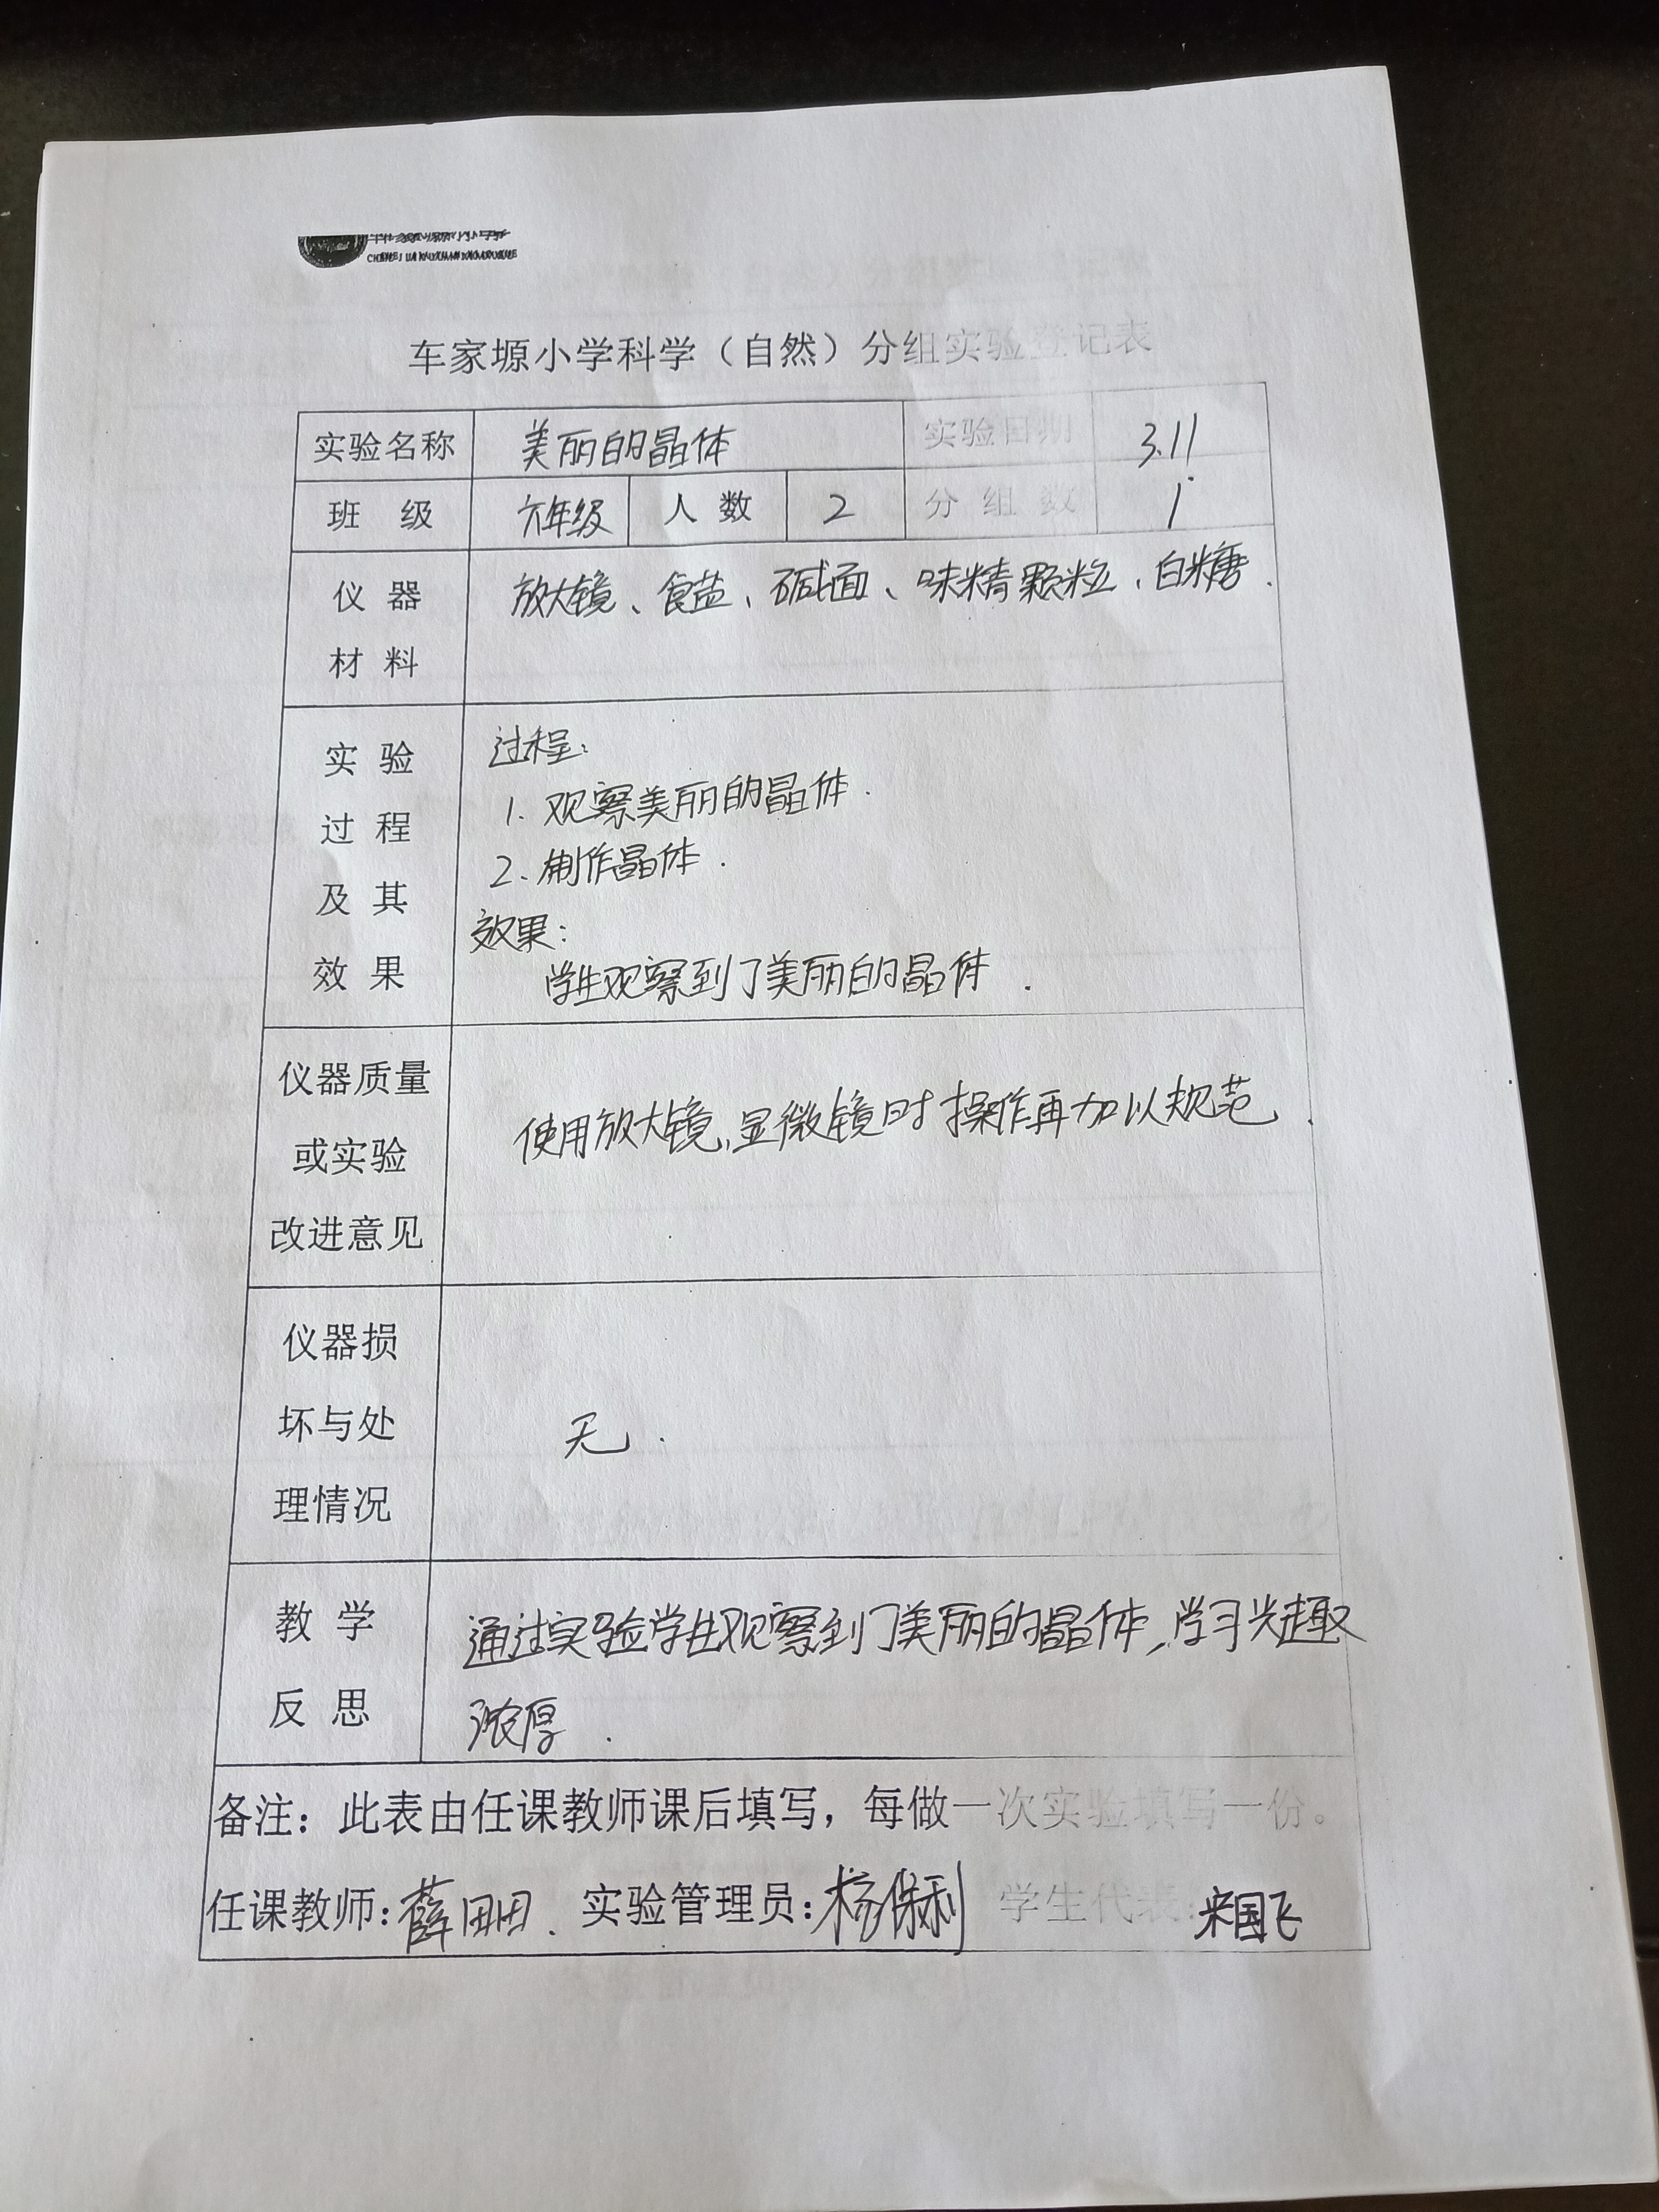 车家塬小学科学（自然）分组实验登记表
实验名称 美丽的晶体 实验日期 3.11
班 级 六年级 人 数 2 分 组 数 1
仪 器 放大镜、食盐、碱面、味精颗粒、白糖.
材 料
实 验 过程:
过 程 1. 观察美丽的晶体.
及 其 2. 制作晶体.
效果:
效 果 学生观察到了美丽的晶体.
仪器质量
或实验 使用放大镜、显微镜时操作再加以规范.
改进意见
仪器损
坏与处 无.
理情况
教 学 通过实验学生观察到了美丽的晶体，学习兴趣
反 思 浓厚.
备注：此表由任课教师课后填写，每做一次实验填写一份。
任课教师：薛田田. 实验管理员：杨保利 学生代表：来国飞